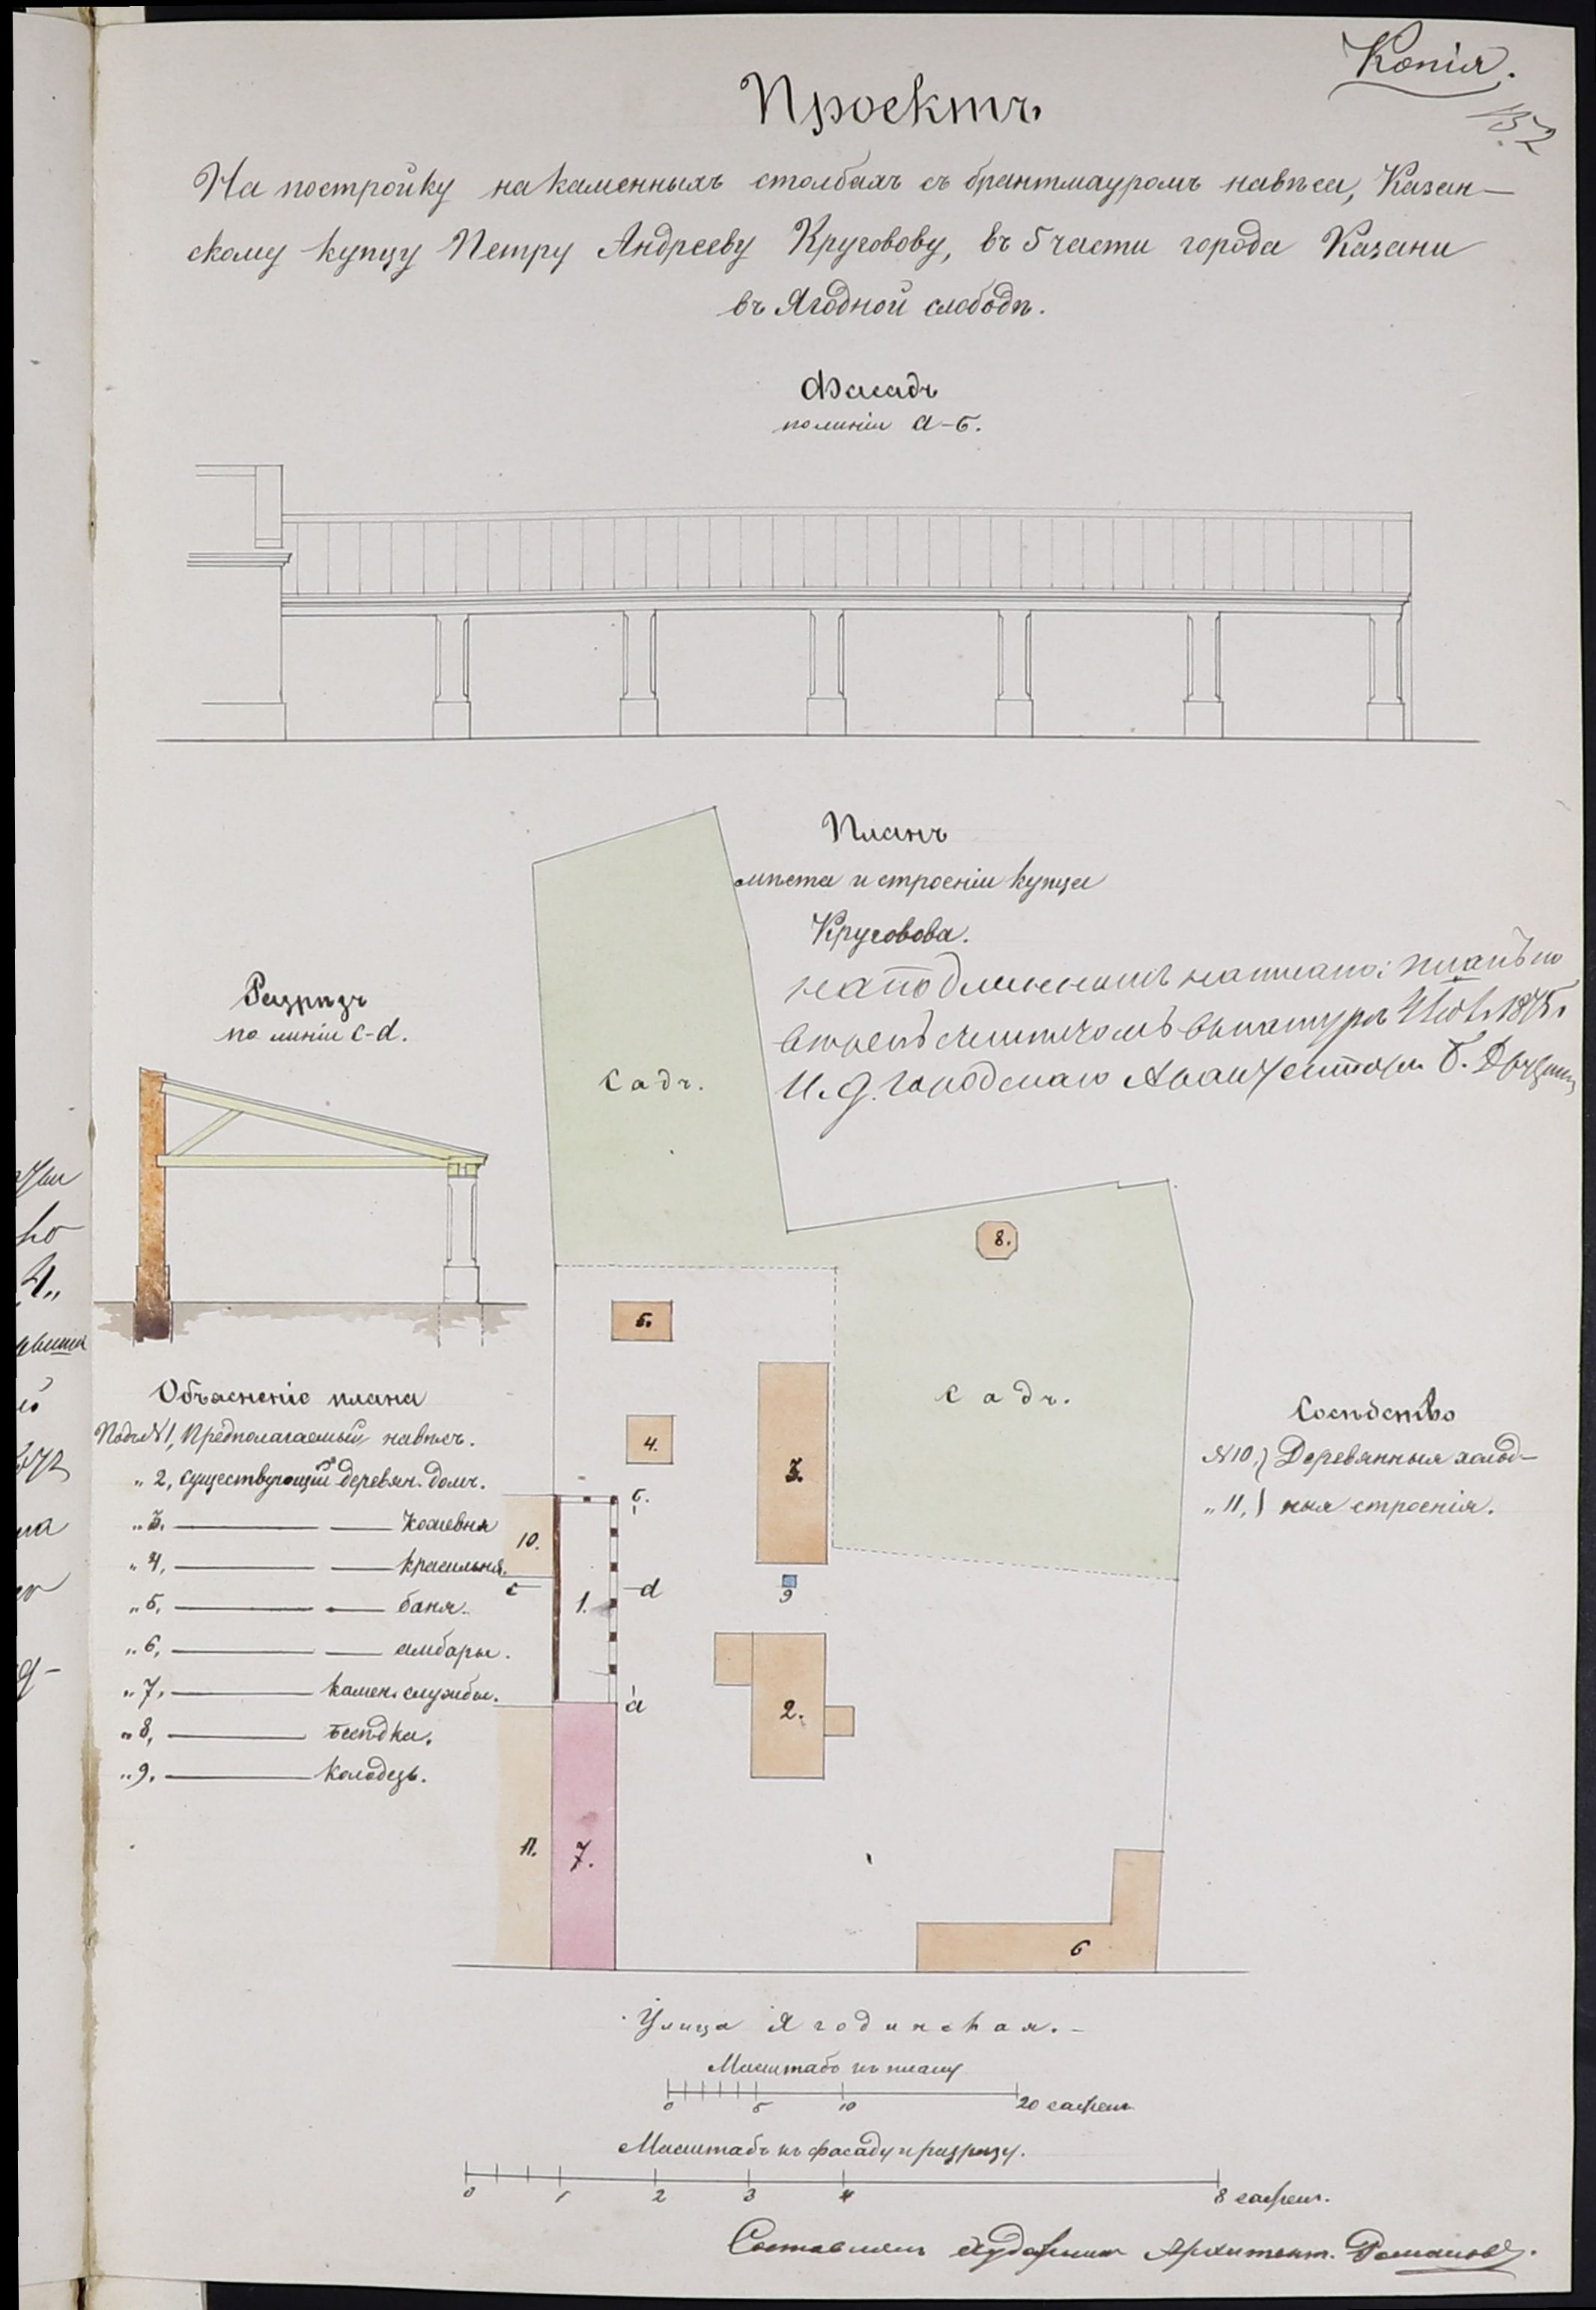 Копія.
152
Проектъ
На постройку на каменныхъ столбахъ съ брантмауромъ навѣса, Казан-
скому купцу Петру Андрееву Круговову, въ 5 части города Казани
въ Ягодной слободѣ.
Фасадъ
по линіи а-б.
Планъ
мѣста и строеніи купца
Круговова.
На подлинномъ написано: планъ
съ натурою 1875 г.
И. д. Городскаго Архитектора
Разрѣзъ
по линіи c-d.
Садъ.
8.
5.
4.
3.
Садъ.
Объясненіе плана
Подъ №1, Предполагаемый навѣсъ.
„ 2, существующій деревян. домъ.
„ 3. — — кожевня
„ 4, — — красильня.
„ 5, — — баня.
„ 6, — — амбары.
„ 7, — камен. службы.
„ 8, — бесѣдка.
„ 9. — колодезь.
Сосѣдство
№10,} Деревянныя холод-
„ 11,} ныя строенія.
б.
10.
c
1.
d
9
а
2.
11.
7.
6
Улица Ягодинская.-
Масштабъ къ плану
0 5 10 20 сажен.
Масштабъ къ фасаду и разрѣзу.
0 1 2 3 4 8 сажен.
Составлялъ художникъ Архитект. Романовъ.